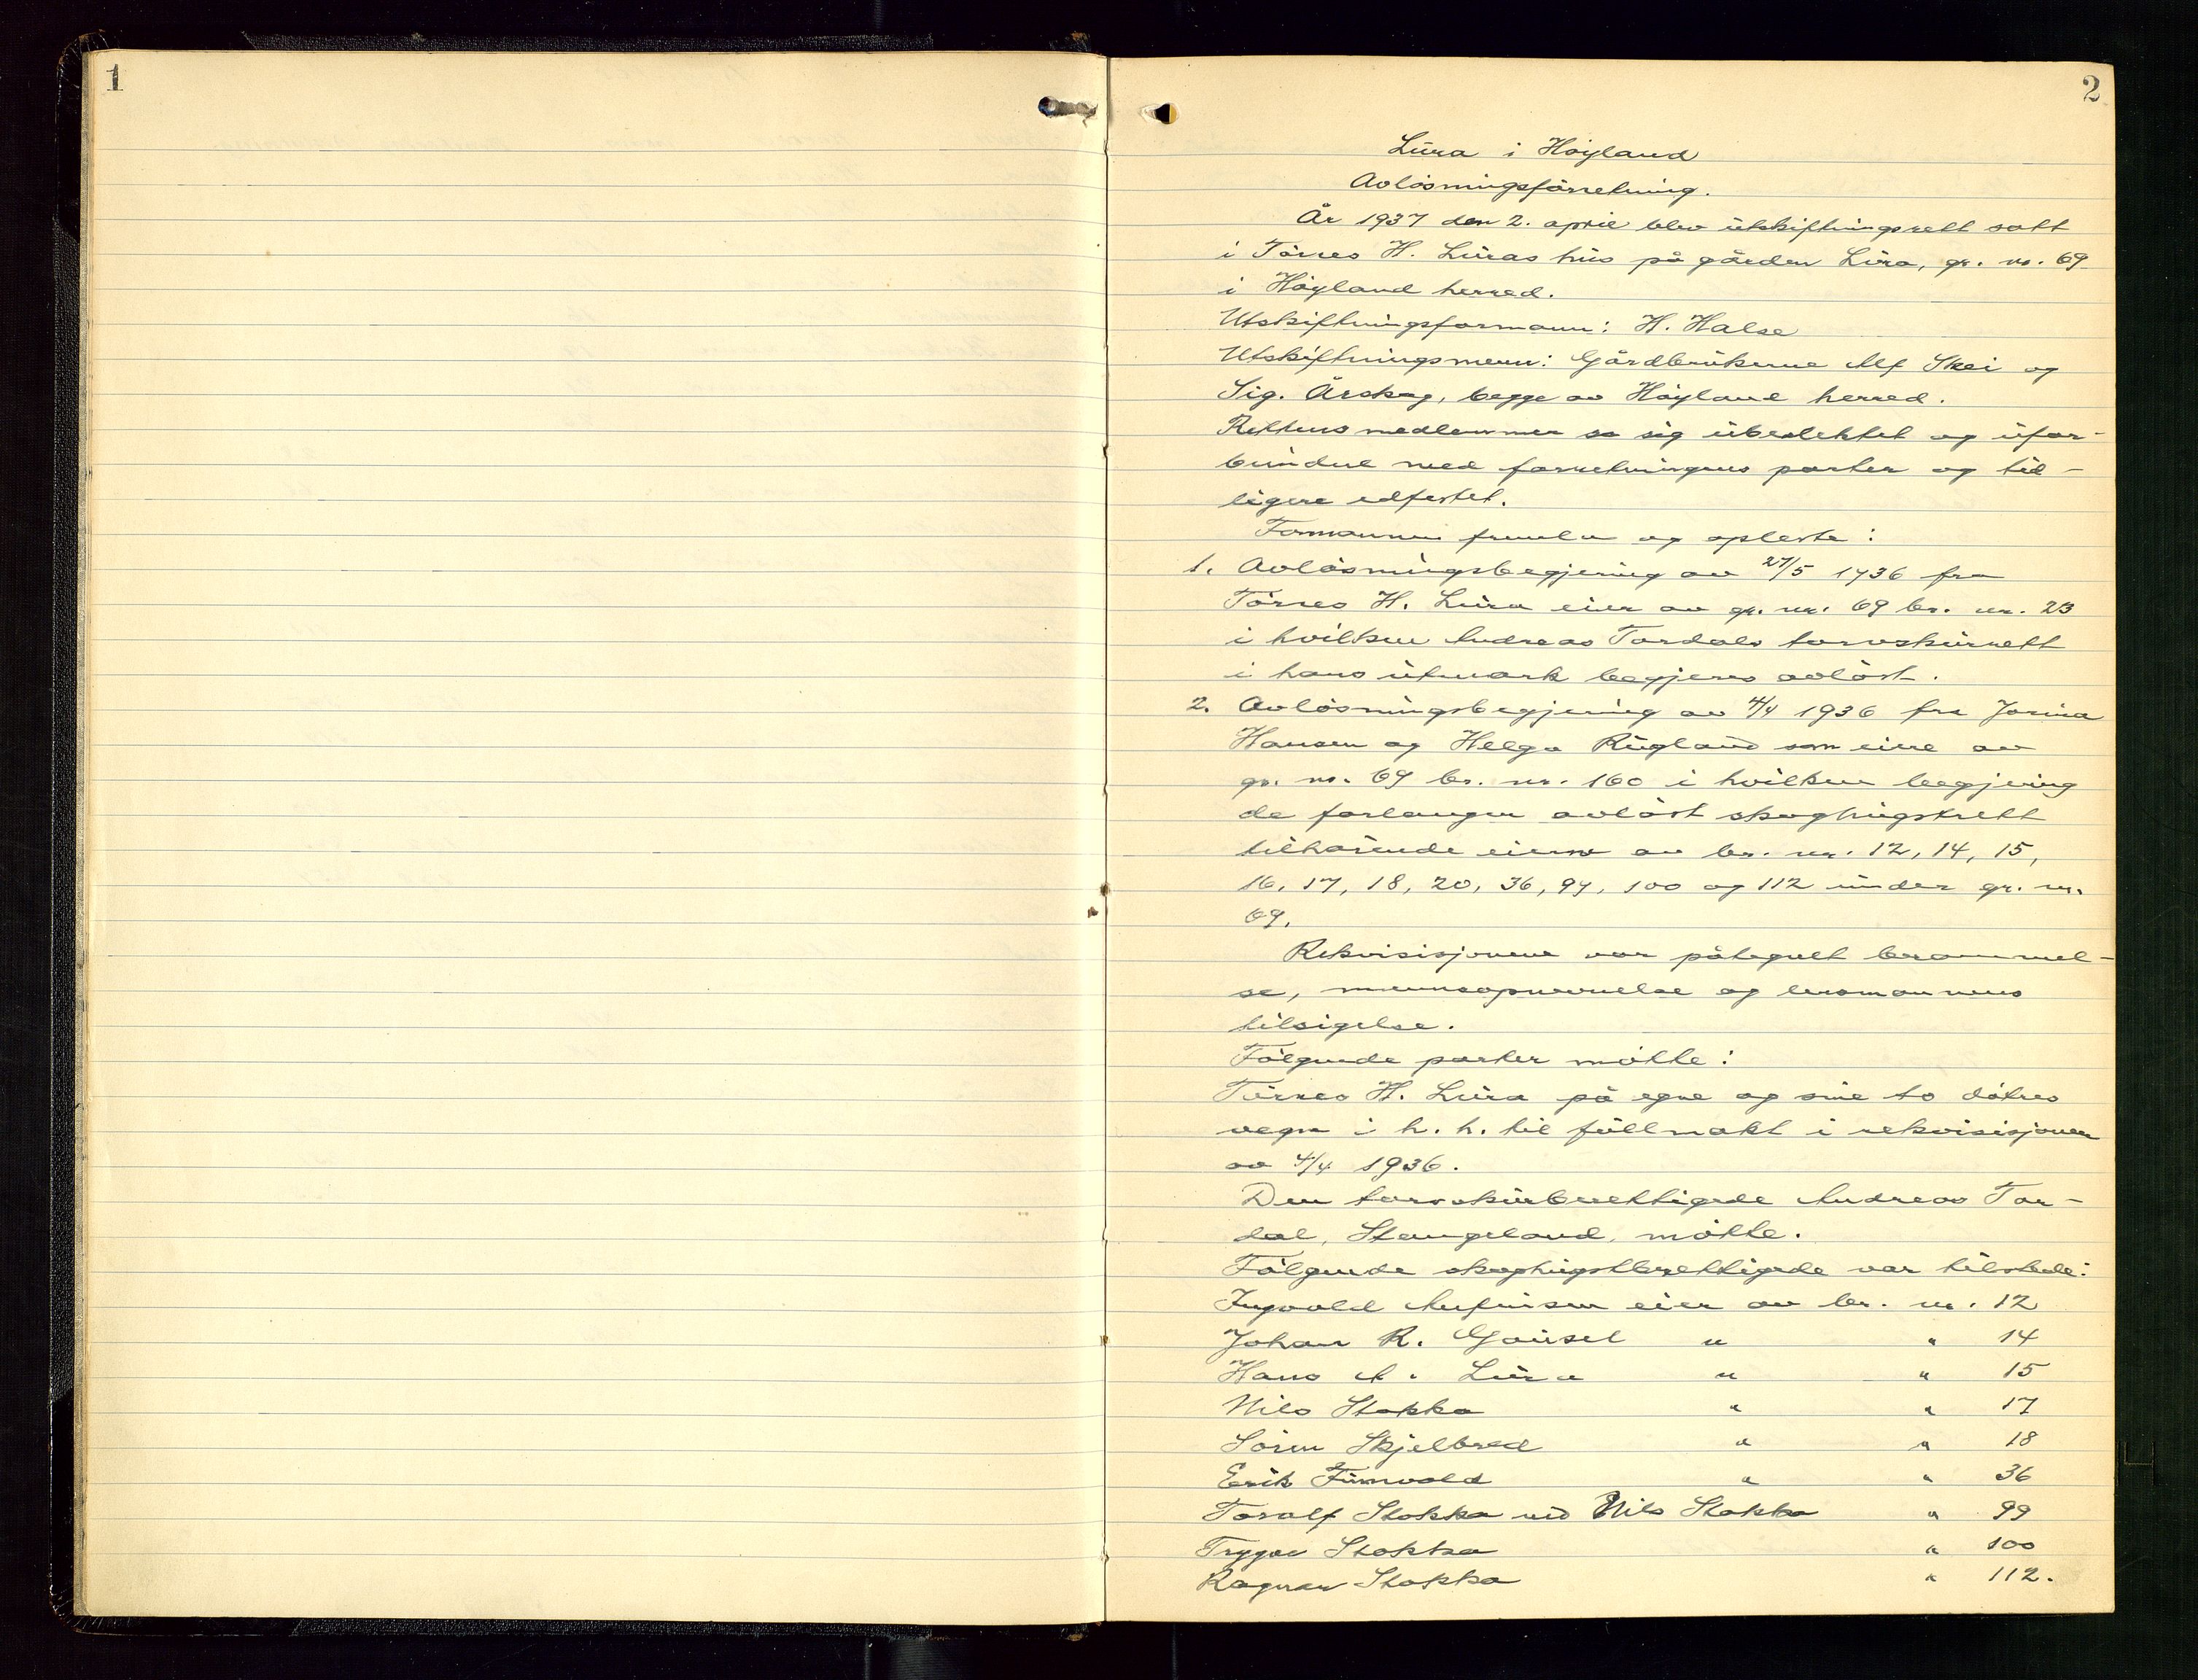 1
2
Lura i Høyland
Avløsningsforretning.
År 1937 den 2. april blev utskiftningsrett satt
i Tørres H. Luras hus på gården Lura, gr. nr. 69
i Høyland herred.
Utskiftningsformann: H. Halse
Utskiftningsmenn: Gårdbrukerne Alf Skei og
Sig. Årskog, begge av Høyland herred.
Rettens medlemmer sa sig ubeslektet og ufor-
bundne med forretningens parter og tid-
ligere edfestet.
Formannen fremla og opleste:
1. Avløsningsbegjering av 27/5 1936 fra
Tørres H. Lura eier av gr. nr. 69 br. nr. 23
i hvilken Andreas Tordals torvskurrett
i hans utmark begjeres avløst.
2. Avløsningsbegjering av 4/4 1936 fra Jorina
Hansen og Helga Rugland som eiere av
gr. nr. 69 br. nr. 160 i hvilken begjering
de forlanger avløst skoghugstrett
tilhørende eierne av br. nr. 12, 14, 15,
16, 17, 18, 20, 36, 99, 100 og 112 under gr. nr.
69.
Rekvisisjonene var påtegnet berammel-
se, mannsopnevnelse og lensmannens
tilsigelse.
Følgende parter møtte:
Tørres H. Lura på egne og sine to døtres
vegne i h. h. til fullmakt i rekvisisjonen
av 4/4 1936.
Den torvskurberettigede Andreas Tor-
dal, Stangeland, møtte.
Følgende skoghugstberettigede var tilstede:
Ingvald Aufinsen eier av br. nr. 12
Johan R. Gausel " " 14
Hans A. Lura " " 15
Nils Stokka " " 17
Søren Skjelbred " " 18
Erik Furnvald " " 36
Toralf Stokka ved Nils Stokka " 99
Trygve Stokka " 100
Ragnar Stokka " 112.